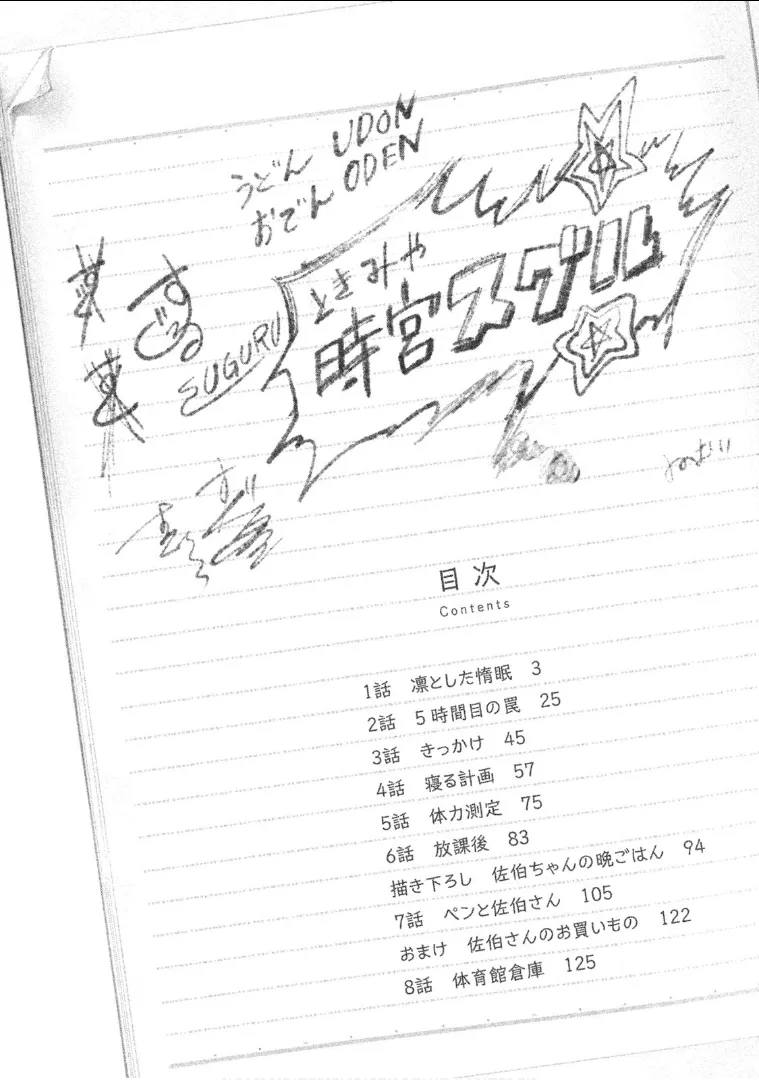 うどん UDON
おでん ODEN
ときみや
時宮スグル
すぐる
SUGURU
目次
Contents
1話 凛とした惰眠 3
2話 5時間目の罠 25
3話 きっかけ 45
4話 寝る計画 57
5話 体力測定 75
6話 放課後 83
描き下ろし 佐伯ちゃんの晩ごはん 94
7話 ペンと佐伯さん 105
おまけ 佐伯さんのお買いもの 122
8話 体育館倉庫 125